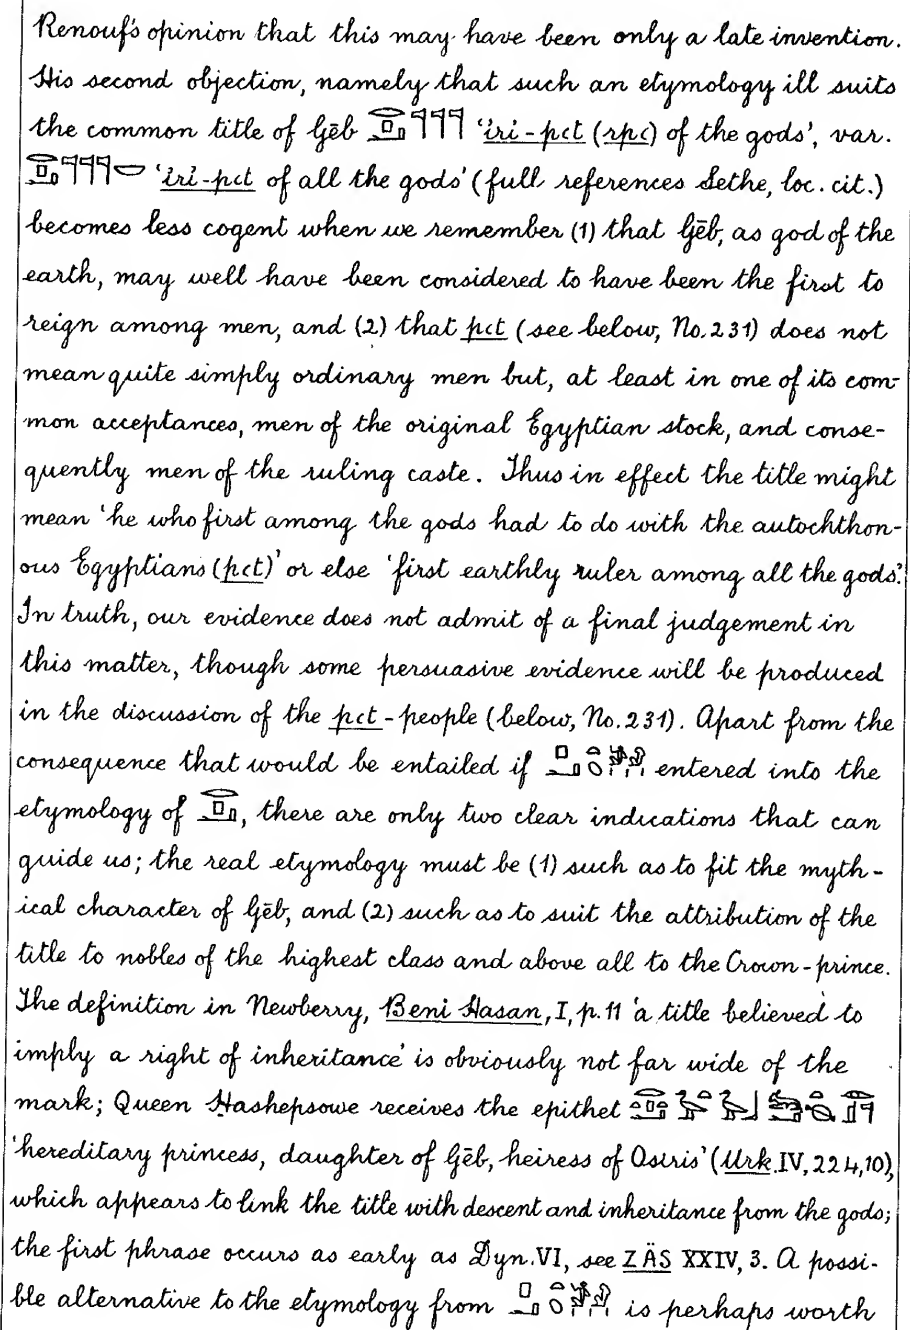 Renouf's opinion that this may have been only a late invention.
His second objection, namely that such an etymology ill suits
the common title of Gēb 'iri-pꜥt (rpꜥ) of the gods', var.
'iri-pꜥt of all the gods' (full references Sethe, loc. cit.)
becomes less cogent when we remember (1) that Gēb, as god of the
earth, may well have been considered to have been the first to
reign among men, and (2) that pꜥt (see below, No. 231) does not
mean quite simply ordinary men but, at least in one of its com-
mon acceptances, men of the original Egyptian stock, and conse-
quently men of the ruling caste. Thus in effect the title might
mean 'he who first among the gods had to do with the autochthon-
ous Egyptians (pꜥt)' or else 'first earthly ruler among all the gods'.
In truth, our evidence does not admit of a final judgement in
this matter, though some persuasive evidence will be produced
in the discussion of the pꜥt-people (below, No. 231). Apart from the
consequence that would be entailed if entered into the
etymology of , there are only two clear indications that can
guide us; the real etymology must be (1) such as to fit the myth-
ical character of Gēb, and (2) such as to suit the attribution of the
title to nobles of the highest class and above all to the Crown-prince.
The definition in Newberry, Beni Hasan, I, p. 11 'a title believed to
imply a right of inheritance' is obviously not far wide of the
mark; Queen Hashepsowe receives the epithet
'hereditary princess, daughter of Gēb, heiress of Osiris' (Urk. IV, 224,10),
which appears to link the title with descent and inheritance from the gods;
the first phrase occurs as early as Dyn. VI, see ZÄS XXIV, 3. A possi-
ble alternative to the etymology from is perhaps worth